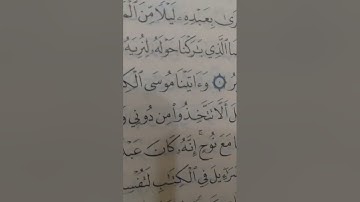 رَىٰ بِعَبْدِهِۦ لَيْلًا مِّنَ ٱلْمَ
ا ٱلَّذِى بَٰرَكْنَا حَوْلَهُۥ لِنُرِيَهُۥ
يرُ ۝ وَءَاتَيْنَا مُوسَى ٱلْكِ
لَ أَلَّا تَتَّخِذُوا۟ مِن دُونِى وَ
نَا مَعَ نُوحٍ ۚ إِنَّهُۥ كَانَ عَبْدً
سْرَٰٓءِيلَ فِى ٱلْكِتَٰبِ لَتُفْسِ